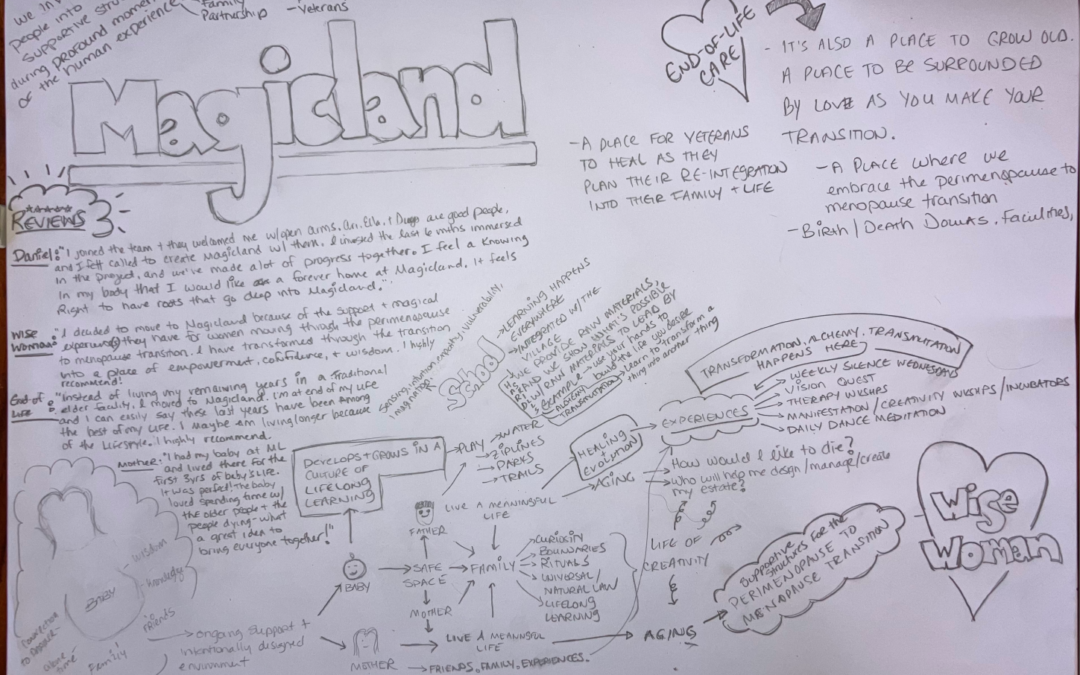 We in
people into
supportive stru
during profound momen
of the human experience
Family
Partnership
- Veterans
Magicland
END-OF-LIFE
CARE
- IT'S ALSO A PLACE TO GROW OLD.
A PLACE TO BE SURROUNDED
BY LOVE AS YOU MAKE YOUR
TRANSITION.
- A PLACE FOR VETERANS
TO HEAL AS THEY
PLAN THEIR RE-INTEGRATION
INTO THEIR FAMILY + LIFE
- A PLACE where we
embrace the perimenopause to
menopause transition
- Birth/Death Doulas, Faculities,
REVIEWS
Daniel: "I joined the team + they welcomed me w/open arms. are good people,
and I felt called to create Magicland w/ them. I invested the last 6 mths immersed
in the project, and we've made alot of progress together. I feel a knowing
in my body that I would like a forever home at Magicland. It feels
Right to have roots that go deep into Magicland."
Wise Woman: "I decided to move to Magicland because of the support + magical
experience they have for women moving through the perimenopause
to menopause transition. I have transformed through the transition
into a place of empowerment, confidence, + wisdom. I highly
recommend!
End of Life: "Instead of living my remaining years in a Traditional
elder facility, I moved to Magicland. I'm at end of my life
and I can easily say these last years have been among
the best of my life. I Maybe am living longer because
of the Lifestyle. I highly recommend.
Mother: "I had my baby at ML
and lived there for the
first 3yrs of baby's life.
It was perfect! The baby
loved spending time w/
the older people + the
people dying - what
a great idea to
bring everyone together!"
sensing, intuition, empathy, vulnerability,
imagination
School
- LEARNING HAPPENS
EVERYWHERE
- INTEGRATED W/ THE
VILLAGE
WE PROVIDE RAW MATERIALS
AND WE SHOW WHAT'S POSSIBLE
W/ RAW MATERIALS TO LEAD BY
EXAMPLE - use your hands to
build the life you desire
Learn to transform a
thing into another
thing
TRANSFORMATION, ALCHEMY, TRANSMUTATION
HAPPENS HERE
EXPERIENCES
WEEKLY SILENCE WEDNESDAYS
VISION QUEST
THERAPY WKSHPS
MANIFESTATION/CREATIVITY WKSHPS/INCUBATORS
DAILY DANCE MEDITATION
DEVELOPS + GROWS IN A
CULTURE OF
LIFELONG
LEARNING
PLAY
WATER
ZIPLINES
PARKS
TRAILS
HEALING
EVOLUTION
AGING
How would I like to die?
Who will help me design/manage/create
my estate?
FATHER
LIVE A MEANINGFUL
LIFE
BABY
SAFE
SPACE
FAMILY
CURIOSITY
BOUNDARIES
RITUALS
UNIVERSAL/
NATURAL LAW
LIFELONG
LEARNING
LIFE OF
CREATIVITY
MOTHER
LIVE A MEANINGFUL
LIFE
AGING
Supportive
structures for the
PERIMENOPAUSE TO
MENOPAUSE TRANSITION
Wise
Woman
MOTHER
FRIENDS, FAMILY, EXPERIENCES.
ongoing support +
intentionally designed
environment
wisdom
Baby
Friends
Family
connection
alone
time